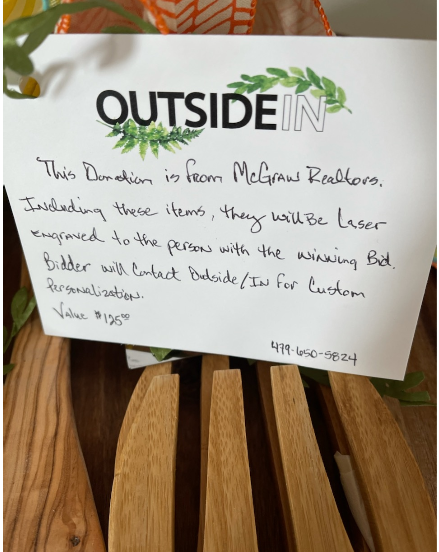 OUTSIDEIN
This Donation is from McGraw Realtors.
Including these items, they will Be Laser
engraved to the person with the winning Bid.
Bidder will Contact Outside/In for Custom
Personalization.
Value $125⁰⁰
479-650-5824